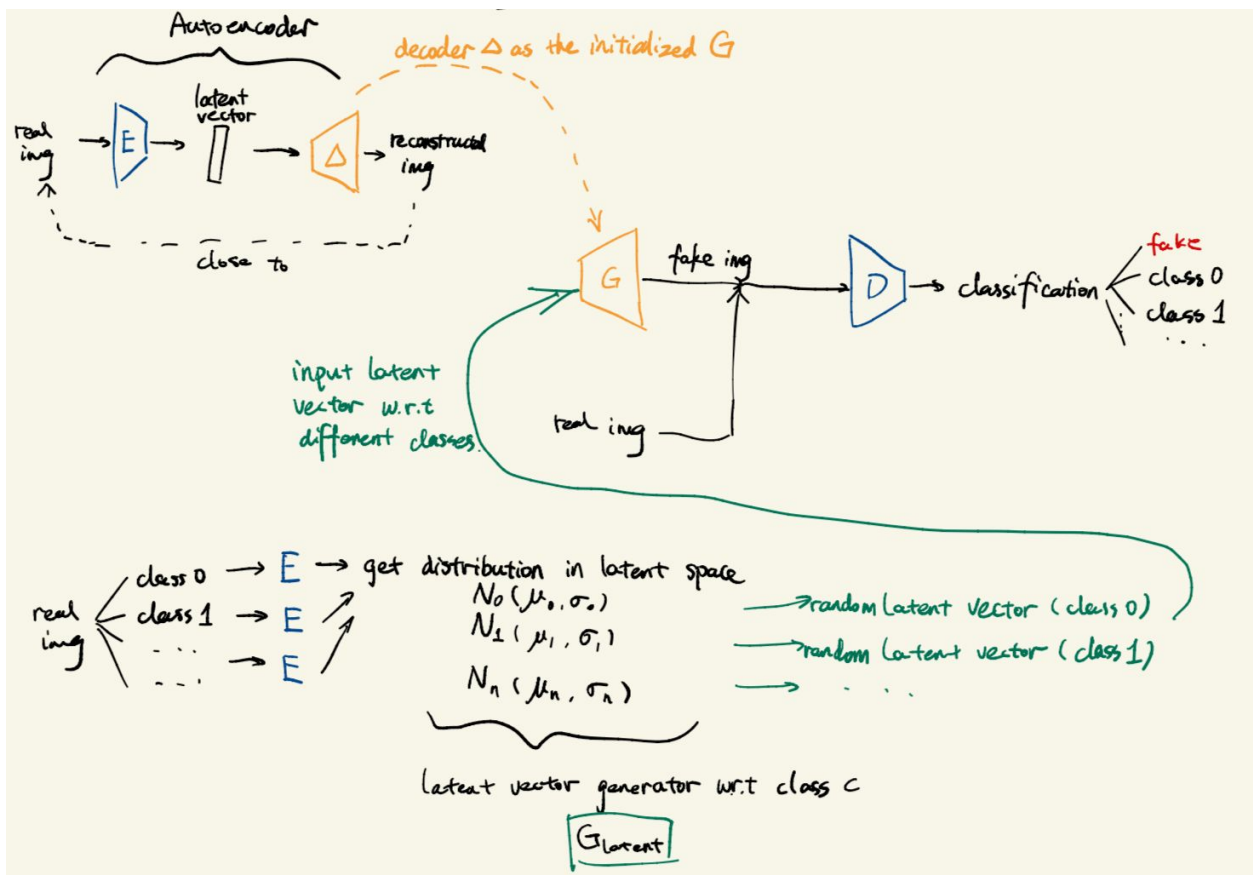 Autoencoder
decoder Δ as the initialized G
latent
vector
real
img
E
Δ
reconstructed
img
close to
G
fake img
D
classification
fake
class 0
class 1
. . .
input latent
vector w.r.t
different classes.
real img
real
img
class 0
E
get distribution in latent space
class 1
E
. . .
E
N₀ (μ₀, σ₀)
N₁ (μ₁, σ₁)
Nₙ (μₙ, σₙ)
random latent vector (class 0)
random latent vector (class 1)
. . . .
latent vector generator w.r.t class c
G latent